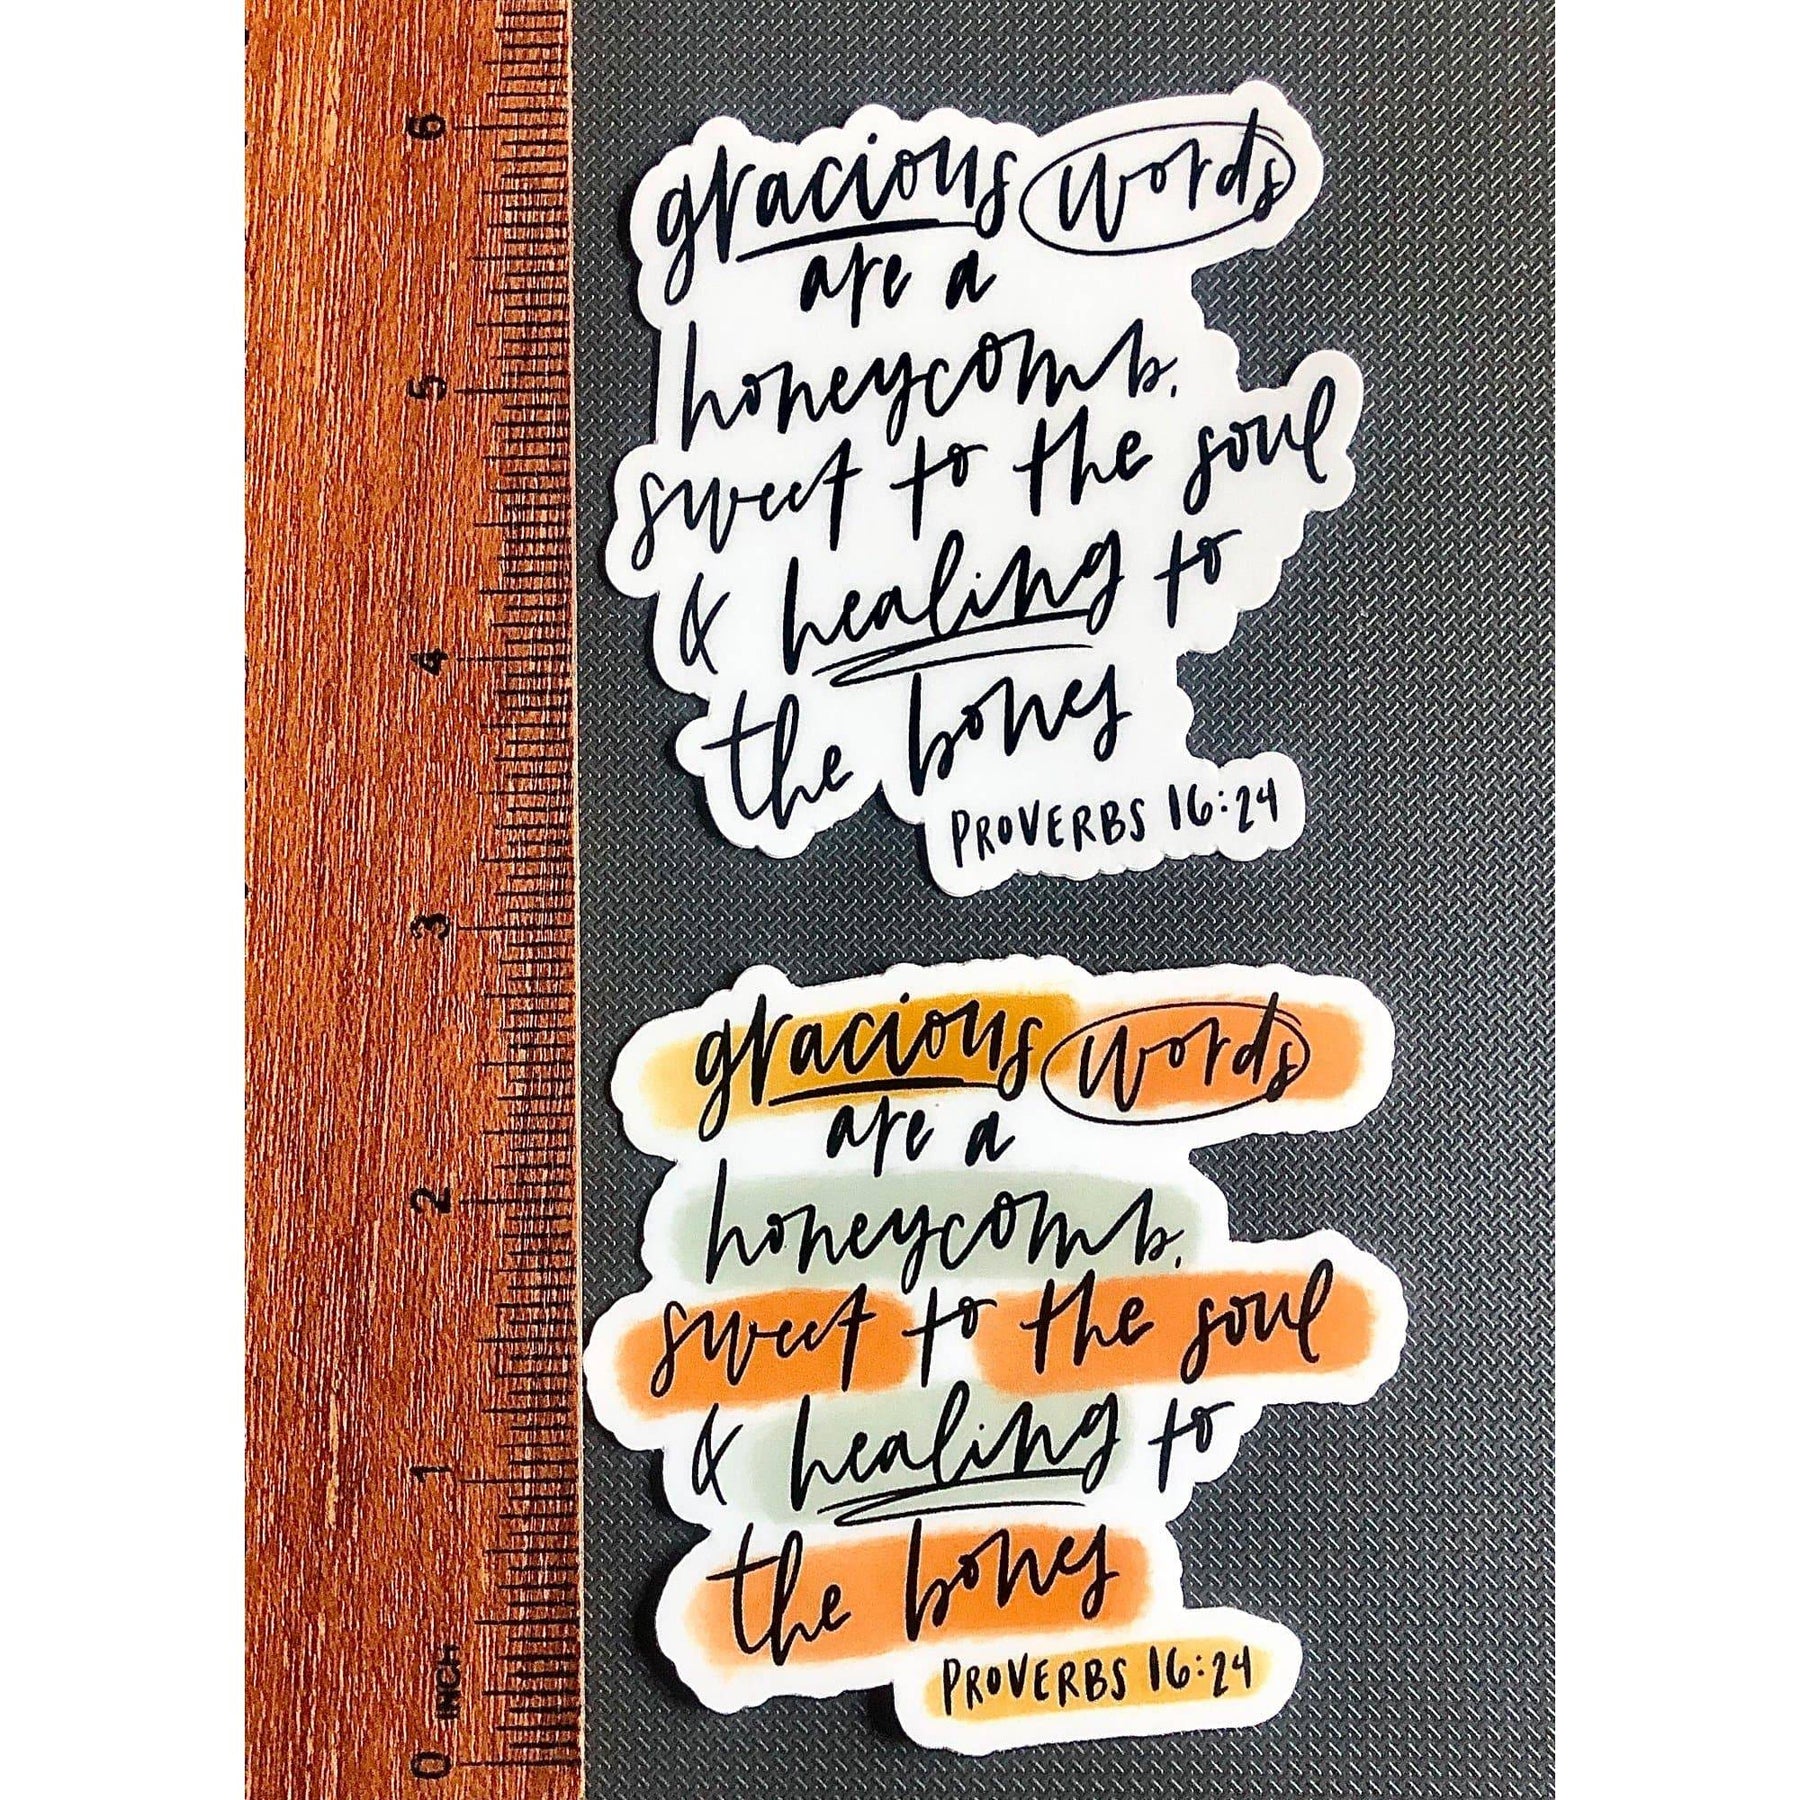 6
5
4
3
2
1
INCH
0
gracious words
are a
honeycomb,
sweet to the soul
& healing to
the bones
PROVERBS 16:24
gracious words
are a
honeycomb,
sweet to the soul
& healing to
the bones
PROVERBS 16:24